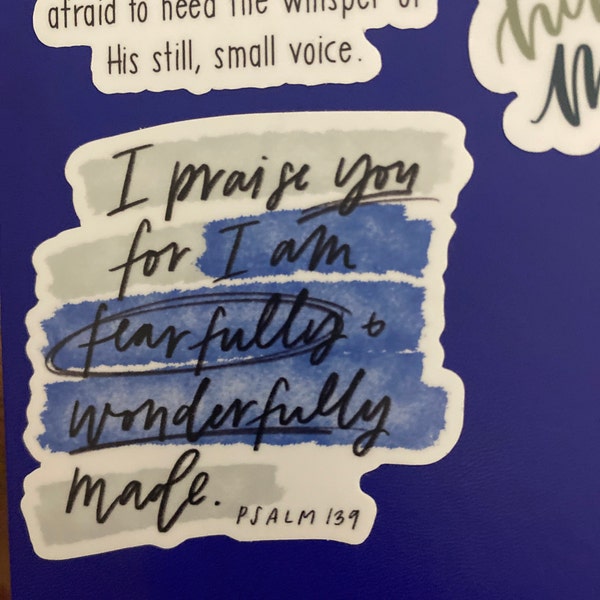 afraid to heed the whisper of
His still, small voice.
I praise you
for I am
fearfully &
wonderfully
made.
PSALM 139